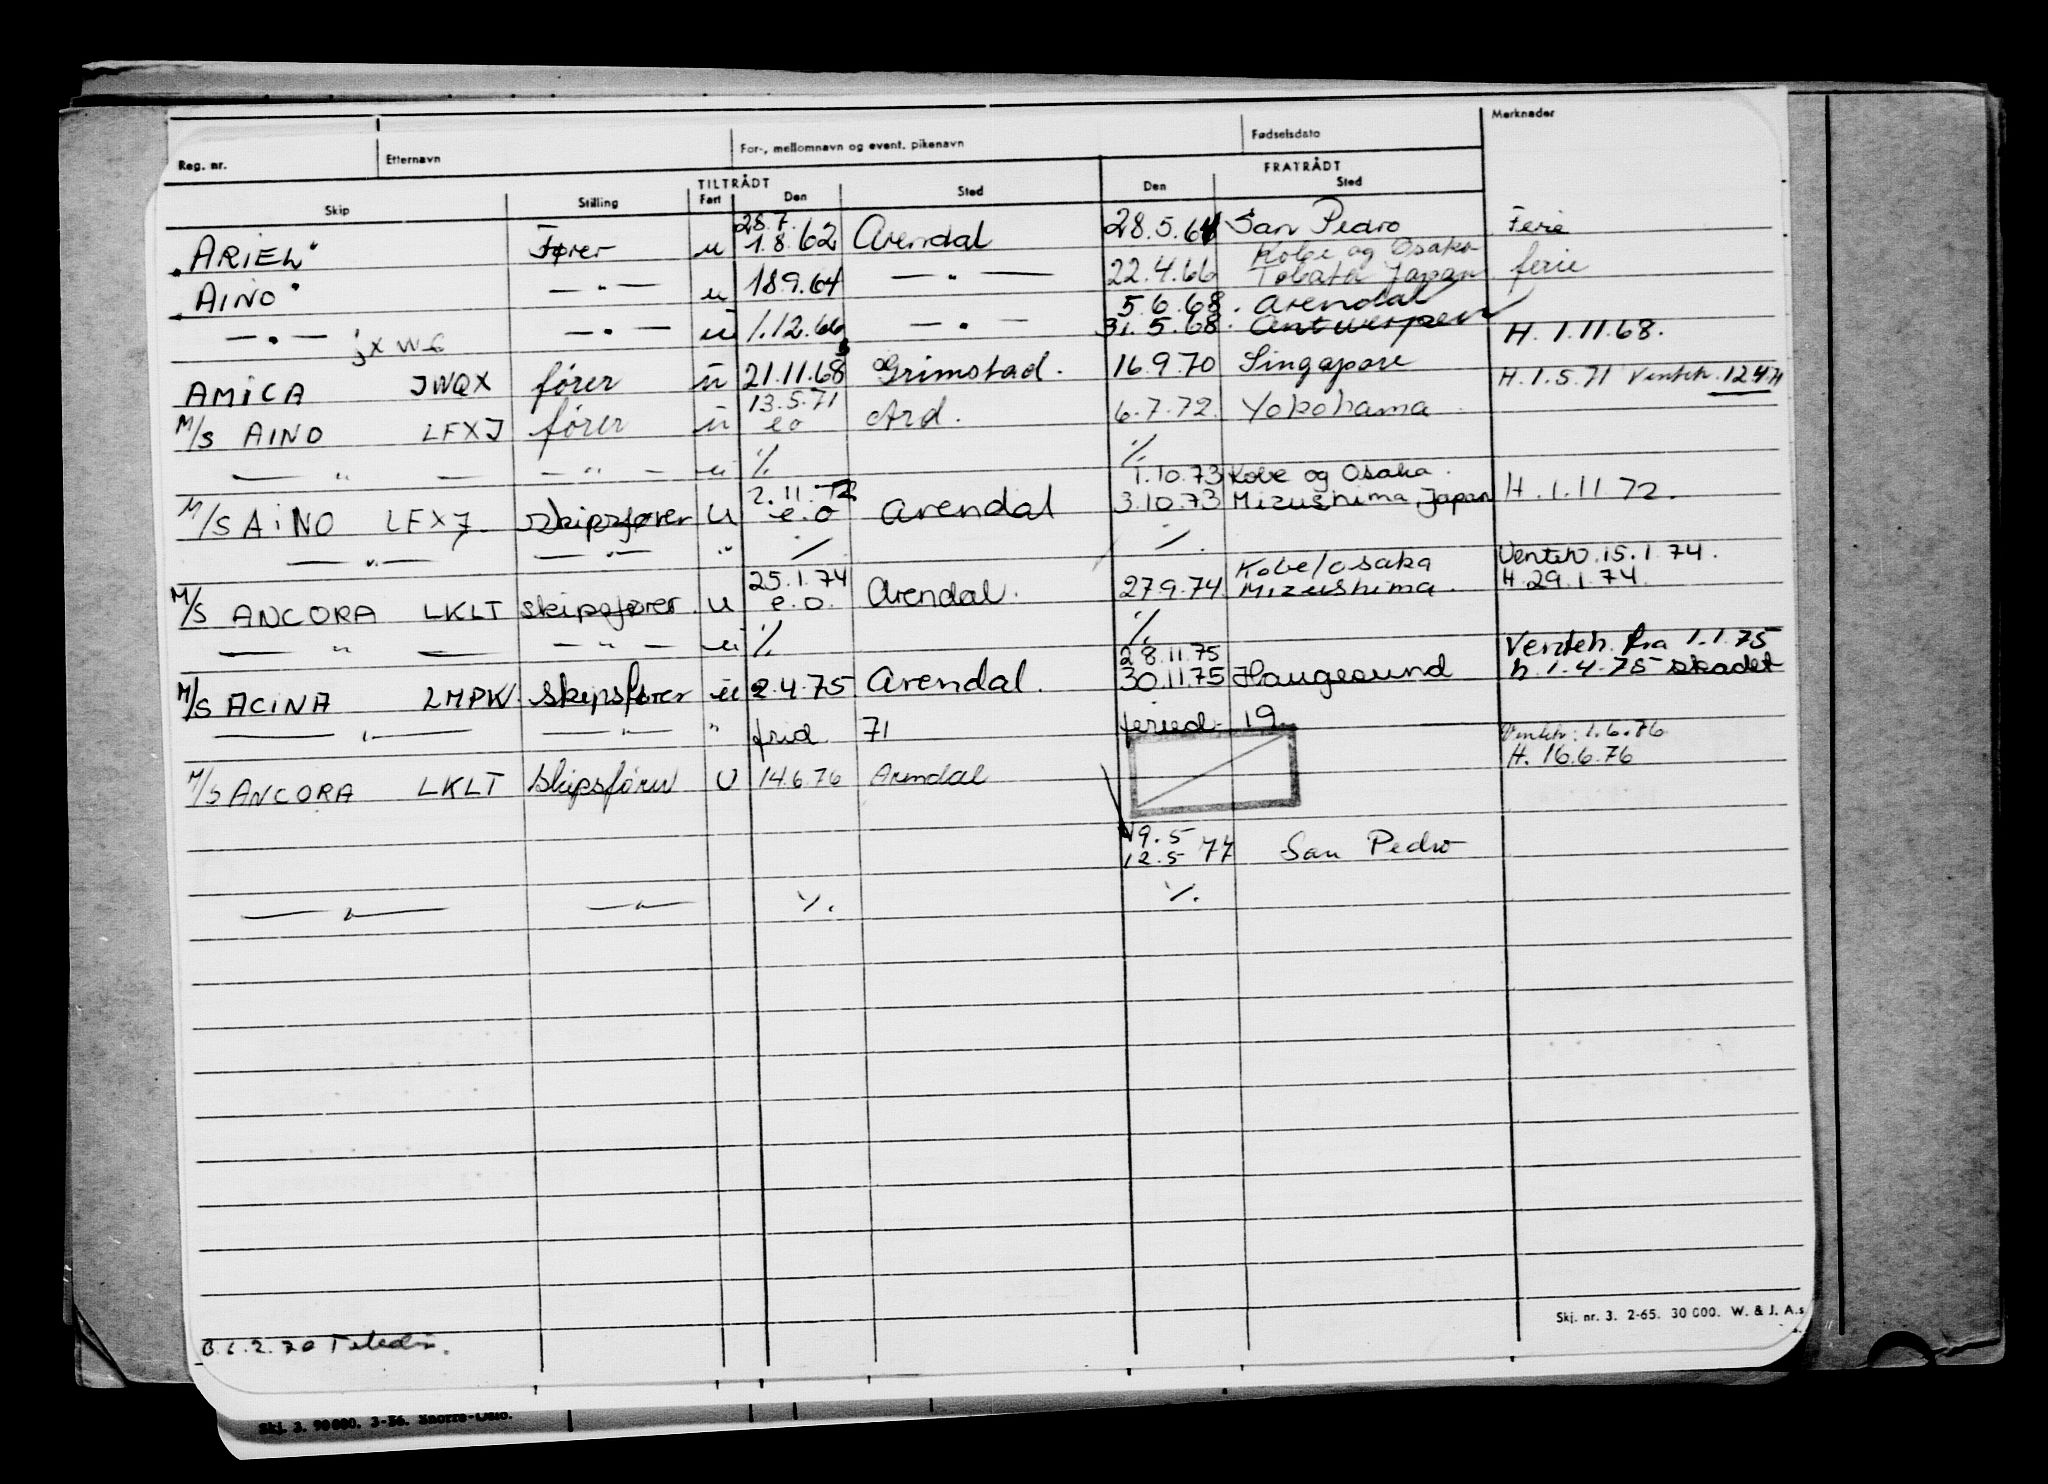 Reg. nr. Etternavn For-, mellomnavn og event. pikenavn Fødselsdato Merknader
TILTRÅDT FRATRÅDT
Skip Stilling Fart Den Sted Den Sted
28.7.
"ARIEL" Fører u 1.8.62 Arendal 28.5.64 San Pedro Ferie
Kobe og Osaka
"AINO" — " — u 18.9.64 — " — 22.4.66 Tobata Japan ferie
5.6.68. Arendal
— " — u 1.12.66 — " — 31.5.68. Antwerpen H. 1.11.68.
jxwc
AMICA JWQX fører u 21.11.68 Grimstad. 16.9.70 Singapore H. 1.5.71 Venteh. 12.4.71
13.5.71
M/S AINO LFXJ fører u eo Ard. 6.7.72. Yokohama
— " — — " — u ./. ./.
2.11.72 1.10.73 Kobe og Osaka.
M/S AINO LFXJ skipsfører u e.o Arendal 3.10.73 Mizushima Japan H. 1.11.72.
— " — — " — " ./. ./.
25.1.74 Kobe/Osaka Venteh. 15.1.74.
M/S ANCORA LKLT skipsfører. u e.o. Arendal. 27.9.74 Mizushima. H. 29.1.74.
— " — — " — u ./. ./.
28.11.75 Venteh. fra 1.1.75
M/S ACINA LMPW. skipsfører u 2.4.75 Arendal. 30.11.75 Haugesund h. 1.4.75 skadet
— " — — " — " frid 71 feried. 19.
Venteh: 1.6.76
M/S ANCORA LKLT Skipsfører U 14.6.76 Arendal H. 16.6.76
19.5
12.5 77 San Pedro
— " — — " — ./. ./.
Skj. nr. 3. 2-65. 30 000. W. & J. A.s
Skj. 3. 90000. 3-56. Snorre-Oslo.